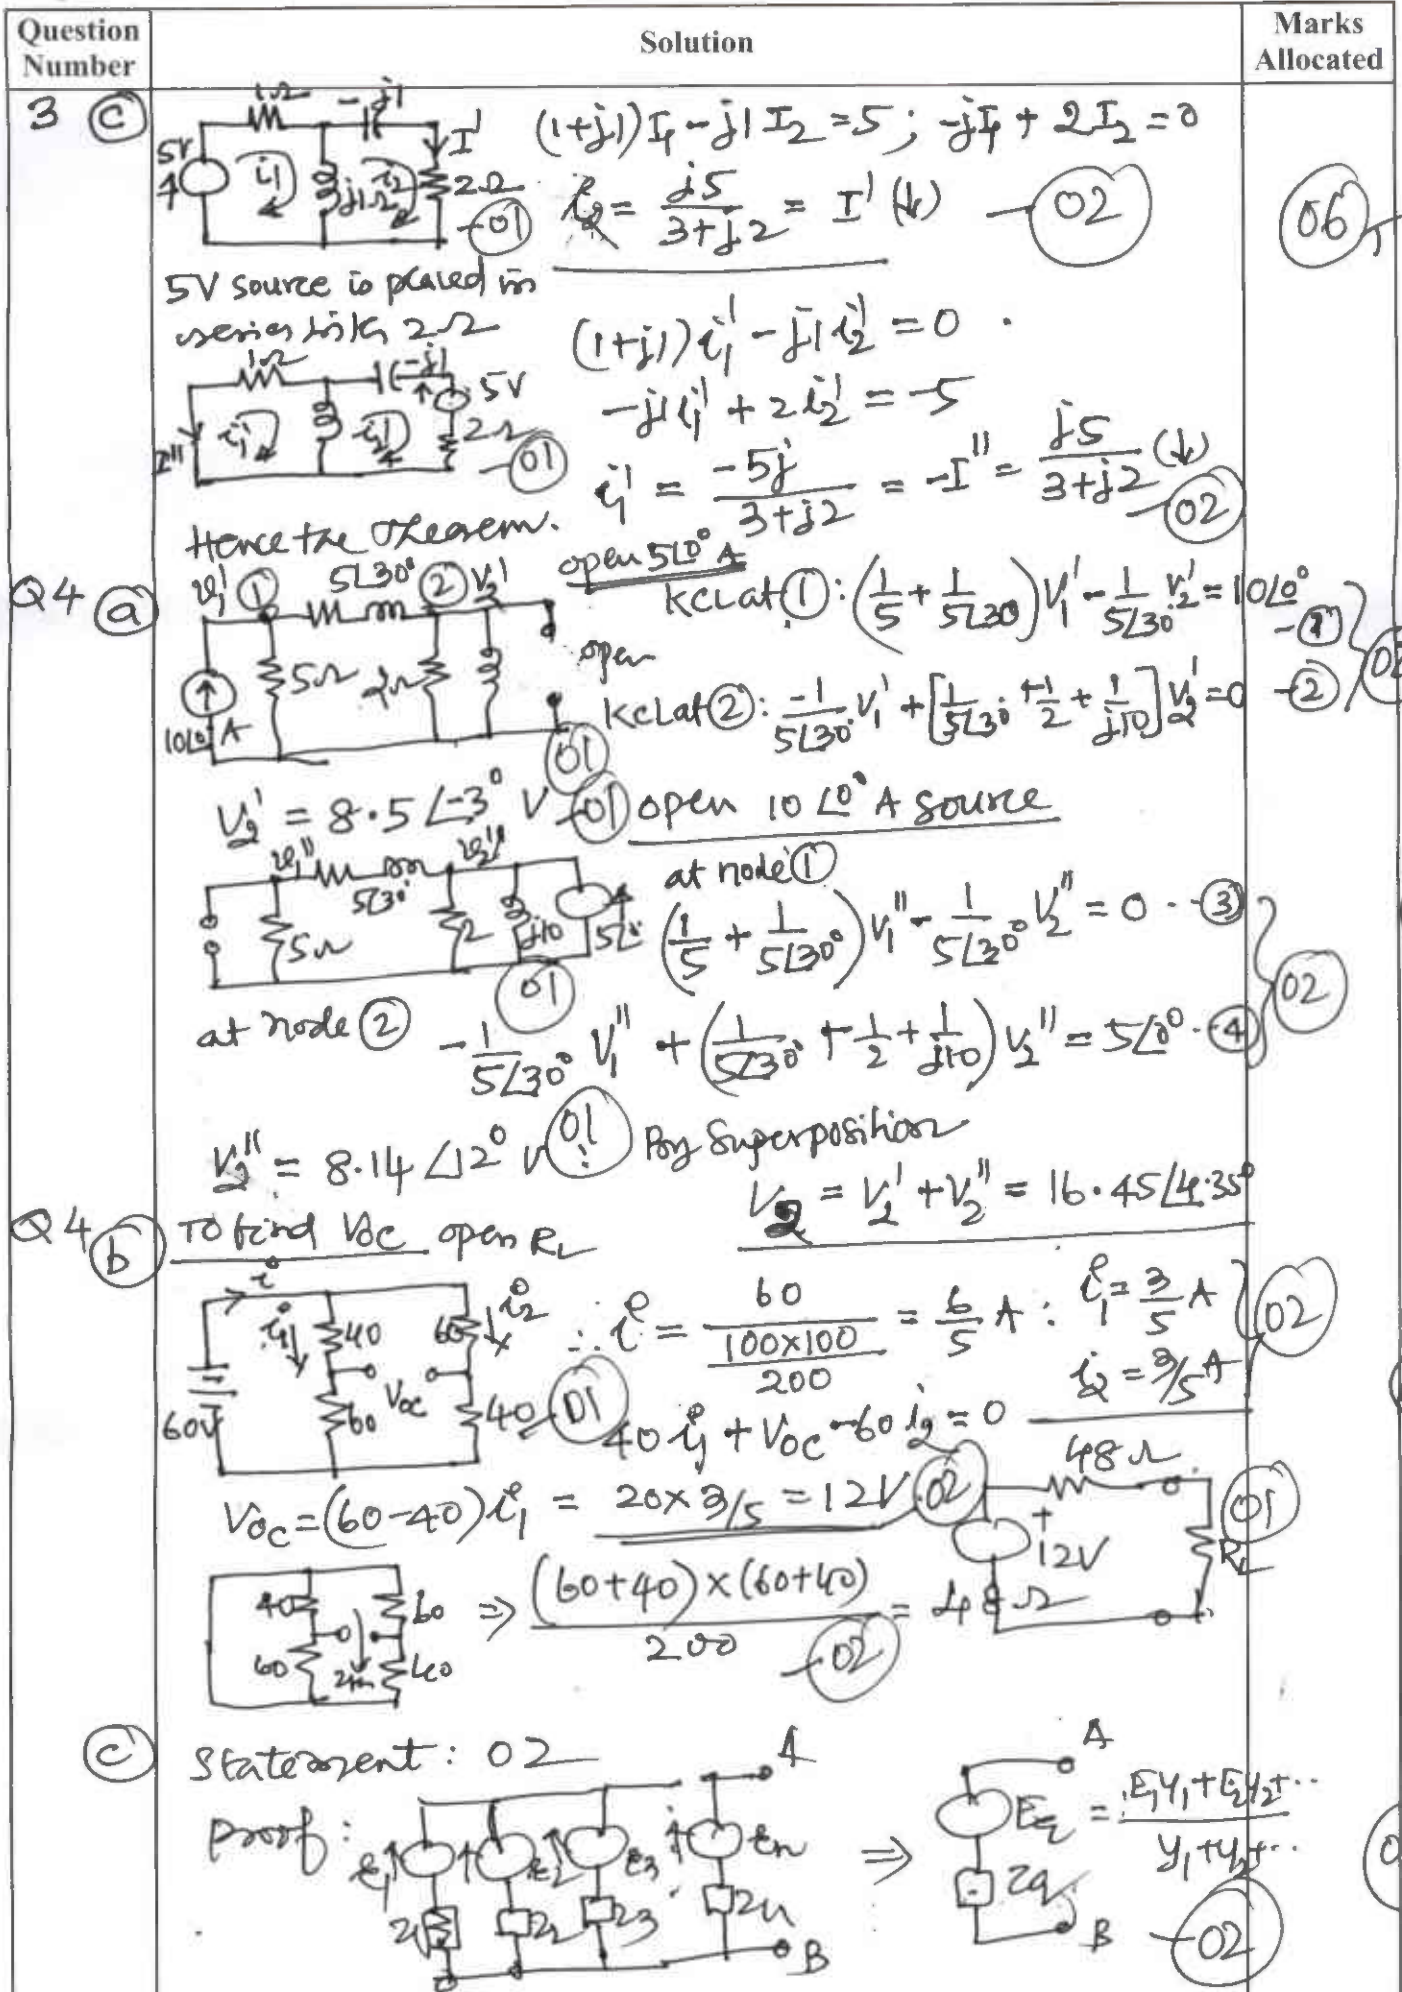 Question Number
Solution
Marks Allocated
3 (c)
1Ω
-j1
5V
i1
j1Ω
i2
I'
2Ω
-01
(1+j1)I1 - j1 I2 = 5 ; -jI1 + 2I2 = 0
i2 = j5/(3+j2) = I' (↓)
- 02
06
5V source is placed in
series with 2Ω
1Ω
-j1
5V
I''
i1'
i2'
2Ω
-01
(1+j1)i1' - j1 i2' = 0 .
-j1 i1' + 2 i2' = -5
i1' = -5j/(3+j2) = -I'' = j5/(3+j2) (↓)
-02
Hence the Theorem.
Q4 (a)
V1' ①
5∠30°
② V2'
10∠0° A
5Ω
2Ω
open
01
open 5∠0° A
KCL at ①: (1/5 + 1/5∠30)V1' - 1/5∠30° V2' = 10∠0° -①
KCL at ②: -1/5∠30° V1' + [1/5∠30° + 1/2 + 1/j10]V2' = 0 -②
V2' = 8.5∠-3° V -01
open 10∠0° A source
V1''
V2''
5∠30°
5Ω
2
j10
5∠0°
01
at node ①
(1/5 + 1/5∠30°)V1'' - 1/5∠30° V2'' = 0 - -③
02
at node ②
-1/5∠30° V1'' + (1/5∠30° + 1/2 + 1/j10)V2'' = 5∠0° - ④
V2'' = 8.14∠12° V 01
By Superposition
V2 = V2' + V2'' = 16.45∠4.35°
Q4 (b)
To find Voc open RL
i
i1
40
60
i2
60V
60
Voc
40
01
∴ i = 60/(100×100/200) = 6/5 A : i1 = 3/5 A
i2 = 3/5 A
02
40 i1 + Voc - 60 i2 = 0
Voc = (60-40)i1 = 20×3/5 = 12V 02
48Ω
+
12V
RL
01
40
60
60
40
⇒ (60+40)×(60+40)/200 = 48Ω
-02
(c)
Statement : 02
Proof :
E1
E2
E3
En
Z1
Z2
Z3
Zn
A
B
⇒
A
Eq = E1Y1+E2Y2+··/Y1+Y2+··
Zq
B
-02